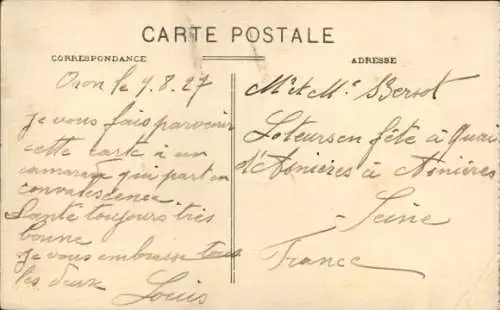 CARTE POSTALE
CORRESPONDANCE
Oran le 9.8.27
je vous fais parvenir
cette carte à un
camarade qui part en
convalescence.
Santé toujours très
bonne
je vous embrasse tous
les deux
Louis
ADRESSE
Mr et Me Bersot
en fête à Quai
d'Asnières à Asnières
Seine
France